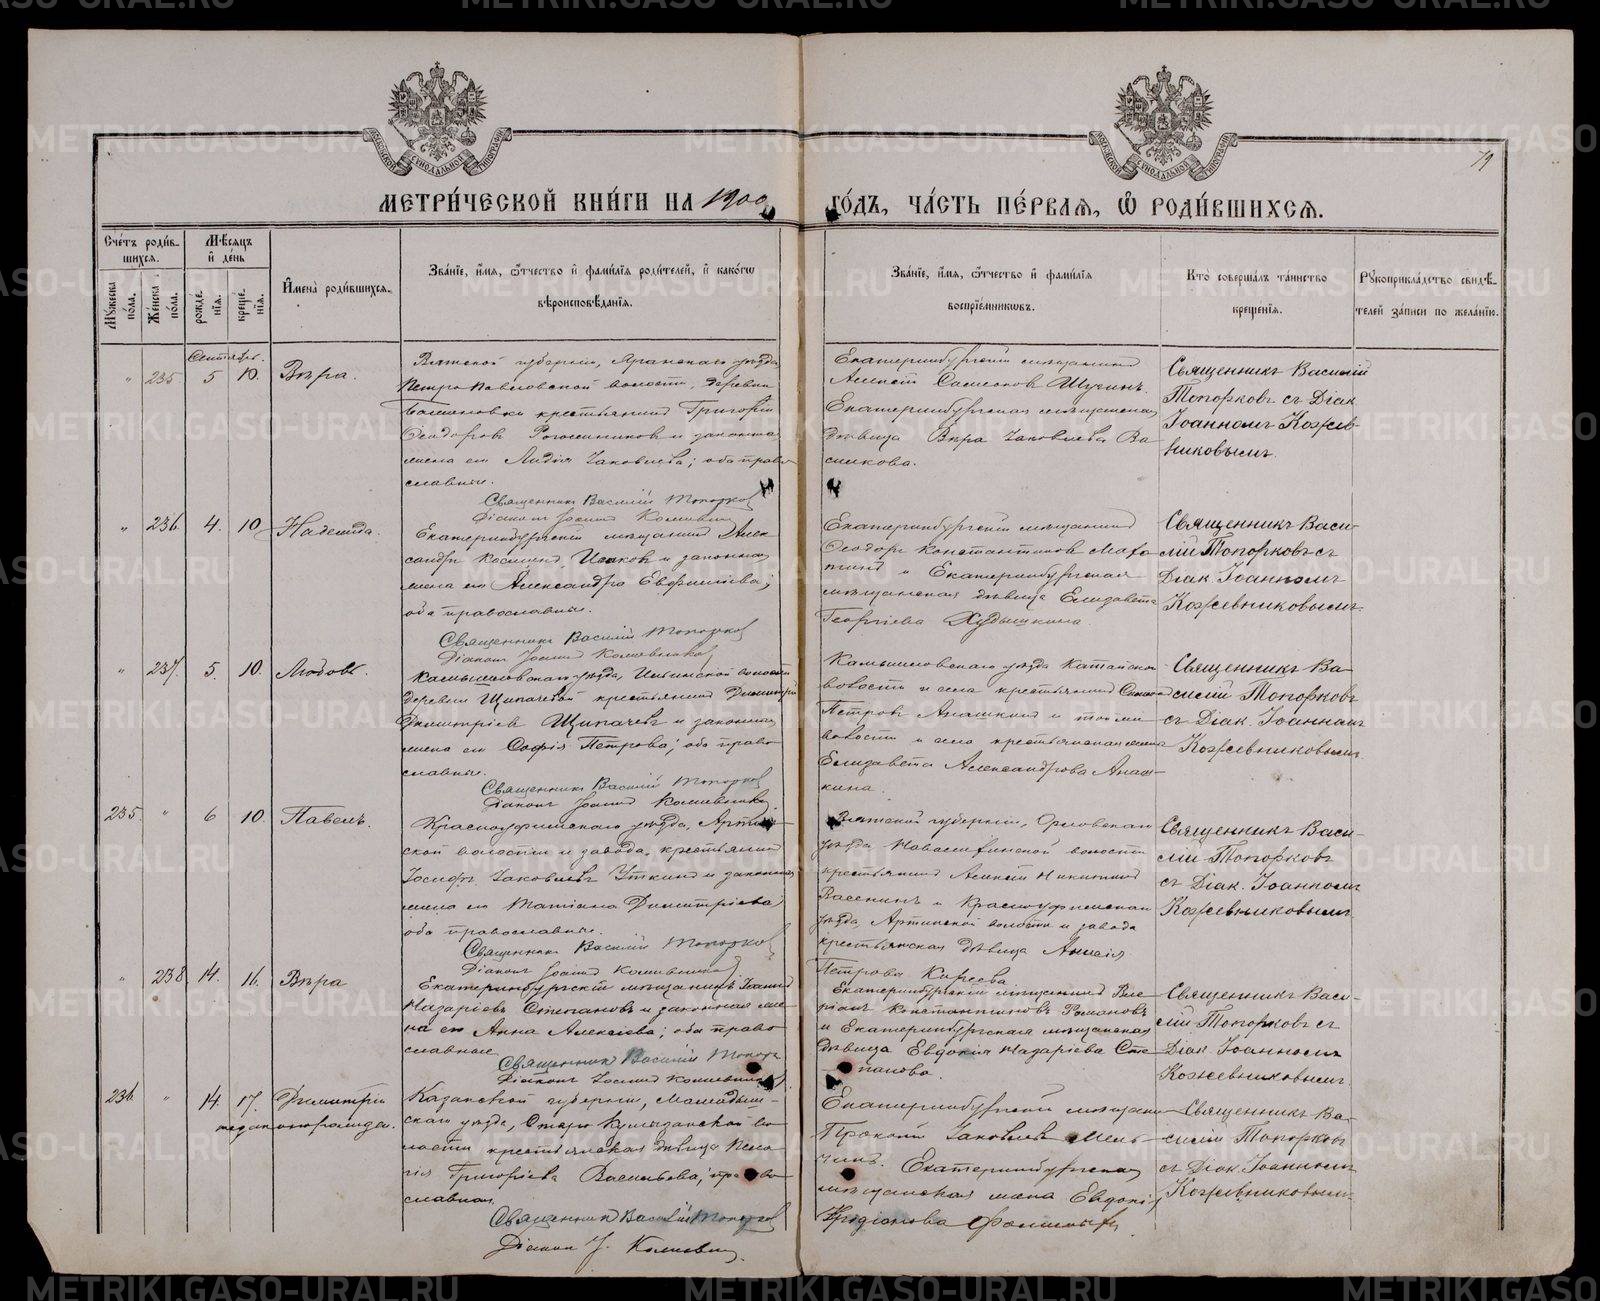 79
МЕТРИЧЕСКОЙ КНИГИ НА 1900 ГОДЪ, ЧАСТЬ ПЕРВАЯ, Ѡ РОДИВШИХСЯ.
Счетъ родившихся.
Мужеска пола.
Женска пола.
Мѣсяцъ и день
рожденія.
крещенія.
Имена родившихся.
Званіе, имя, ѿчество и фамилія родителей, и какогѡ вѣроисповѣданія.
Званіе, имя, ѿчество и фамилія воспріемниковъ.
Кто совершалъ таинство крещенія.
Рукоприкладство свидѣтелей записи по желанію.
Сентябрь.
" 235 5 10. Вѣра.
Вятской губерніи, Яранскаго уѣзда
Петропавловской волости, деревни
крестьянинъ Григорій
Ѳеодоровъ и законная
жена его Лидія Іаковлева; оба право-
славные.
Священникъ Василій Топорковъ
Діаконъ Іоаннъ Кожевниковъ
Екатеринбургскій мѣщанинъ
Алексѣй Щукинъ
Екатеринбургская мѣщанская
дѣвица Вѣра Іаковлева Ва-
сникова.
Священникъ Василій
Топорковъ съ Діак.
Іоанномъ Кожев-
никовымъ.
" 236 4. 10. Надежда.
Екатеринбургскій мѣщанинъ Алек-
сандръ Исаковъ и законная
жена его Александра Евфиміева;
оба православные.
Священникъ Василій Топорковъ
Діаконъ Іоаннъ Кожевниковъ
Екатеринбургскій мѣщанинъ
Ѳеодоръ Константиновъ
и Екатеринбургская
мѣщанская дѣвица Елизавета
Георгіева Худышкина.
Священникъ Васи-
лій Топорковъ съ
Діак. Іоанномъ
Кожевниковымъ.
" 237. 5. 10. Любовь.
Камышловскаго уѣзда,
деревни Щипачевой крестьянинъ Димитрій
Димитріевъ Щипачевъ и законная
жена его Софія Петрова; оба право-
славные.
Священникъ Василій Топорковъ
Діаконъ Іоаннъ Кожевниковъ
Камышловскаго уѣзда Катайской
волости и села крестьянинъ
Петровъ Анашкинъ и той же
волости и села крестьянская жена
Елизавета Александрова Анаш-
кина.
Священникъ Ва-
силій Топорковъ
съ Діак. Іоанномъ
Кожевниковымъ.
235. " 6 10. Павелъ.
Красноуфимскаго уѣзда, Артин-
ской волости и завода, крестьянинъ
Іосифъ Іаковлевъ Уткинъ и законная
жена его Татіана Димитріева;
оба православные.
Священникъ Василій Топорковъ
Діаконъ Іоаннъ Кожевниковъ
Вятской губерніи, Орловскаго
уѣзда, волости
крестьянинъ Алексѣй Никитинъ
и Красноуфимскаго
уѣзда, Артинской волости и завода
крестьянская дѣвица Анисія
Петрова Киреева
Священникъ Васи-
лій Топорковъ
съ Діак. Іоанномъ
Кожевниковымъ.
" 238 14. 16. Вѣра
Екатеринбургскій мѣщанинъ Іоаннъ
Назаріевъ Степановъ и законная же-
на его Анна Алексіева; оба право-
славные
Священникъ Василій Топорк
Діаконъ Іоаннъ Кожевниковъ
Екатеринбургскій мѣщанинъ
Константиновъ Романовъ
и Екатеринбургская мѣщанская
дѣвица Евдокія Назаріева Сте-
панова.
Священникъ Васи-
лій Топорковъ съ
Діак. Іоанномъ
Кожевниковымъ.
236. " 14. 17. Димитрій
незаконорожден.
Казанской губерніи, Мамадыш-
скаго уѣзда, во-
лости крестьянская дѣвица Пела-
гія Григоріева Васильева; право-
славная.
Священникъ Василій Топорковъ
Діаконъ І. Кожевниковъ
Екатеринбургскій мѣщанинъ
Прокопій Іаковлевъ
Екатеринбургская
мѣщанская жена Евдокія
Иродіонова
Священникъ Ва-
силій Топорковъ
съ Діак. Іоанномъ
Кожевниковымъ.
METRIKI.GASO-URAL.RU